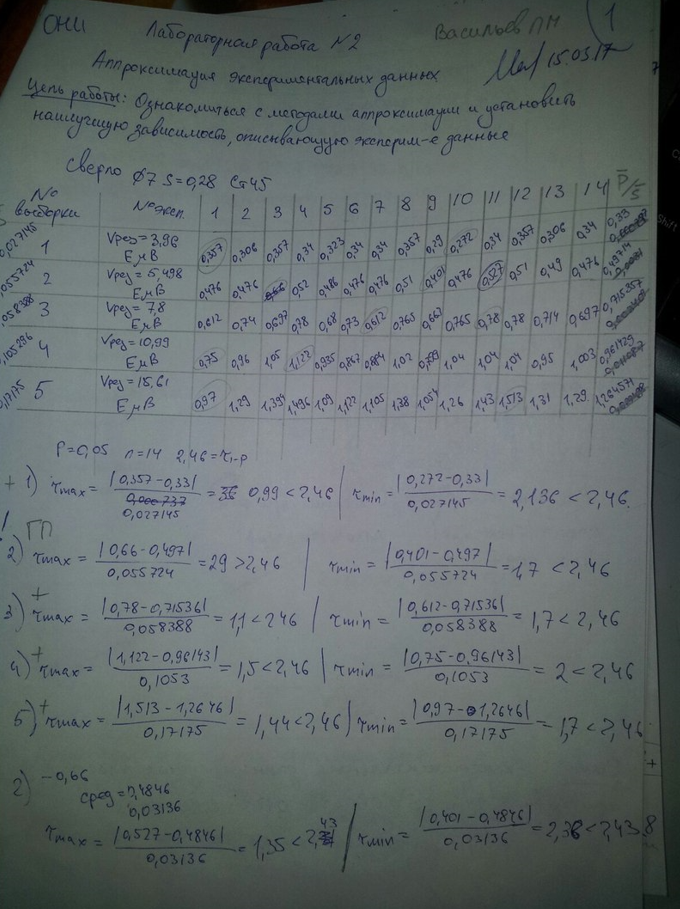 ОНИ Лабораторная работа N2 Васильев ПН 1
15.03.17
Аппроксимация экспериментальных данных
Цель работы: Ознакомиться с методами аппроксимации и установить
наилучшую зависимость, описывающую эксперим-е данные
Сверло Ø7 S=0,28 Ст45
№ выборки № эксп. 1 2 3 4 5 6 7 8 9 10 11 12 13 14 P̄/S̄
0,027145 1 Vрез = 3,96 E, мВ 0,357 0,306 0,357 0,34 0,323 0,34 0,34 0,357 0,29 0,272 0,34 0,357 0,306 0,34 0,39
055724 2 Vрез = 5,498 E, мВ 0,476 0,476 0,66 0,52 0,486 0,476 0,476 0,51 0,401 0,476 0,527 0,51 0,49 0,476 0,49714
058388 3 Vрез = 7,8 E, мВ 0,612 0,74 0,697 0,78 0,68 0,73 0,612 0,765 0,667 0,765 0,78 0,78 0,714 0,697 0,715357
,105296 4 Vрез = 10,99 E, мВ 0,75 0,96 1,05 1,122 0,935 0,867 0,884 1,02 0,799 1,04 1,04 1,04 0,95 1,003 0,961429
0,17175 5 Vрез = 15,61 E, мВ 0,97 1,29 1,394 1,496 1,09 1,122 1,105 1,38 1,054 1,26 1,43 1,513 1,31 1,29 1,264571
P=0,05 n=14 2,46=τ1-p
+ 1) τmax = |0,357-0,33| / 0,027145 = 0,99 < 2,46 | τmin = |0,272-0,33| / 0,027145 = 2,136 < 2,46
! ГП
2) τmax = |0,66-0,497| / 0,055724 = 29 > 2,46 | τmin = |0,401-0,497| / 0,055724 = 1,7 < 2,46
3) + τmax = |0,78-0,71536| / 0,058388 = 1,1 < 2,46 | τmin = |0,612-0,71536| / 0,058388 = 1,7 < 2,46
4) + τmax = |1,122-0,96143| / 0,1053 = 1,5 < 2,46 | τmin = |0,75-0,96143| / 0,1053 = 2 < 2,46
5) + τmax = |1,513-1,2646| / 0,17175 = 1,44 < 2,46 | τmin = |0,97-1,2646| / 0,17175 = 1,7 < 2,46
2) -0,66
сред = 0,4846
0,03136
τmax = |0,527-0,4846| / 0,03136 = 1,35 < 2,43 | τmin = |0,401-0,4846| / 0,03136 = 2,36 < 2,43